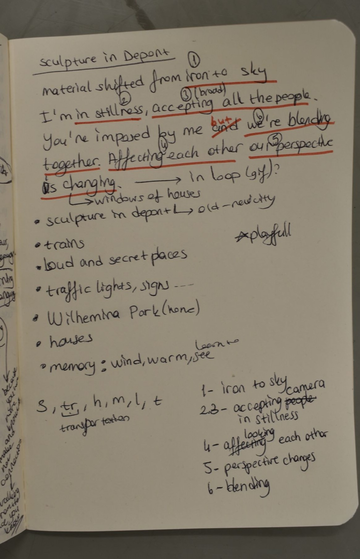 sculpture in Depont
①
material shifted from iron to sky
② ③ (broad)
I'm in stillness, accepting all the people.
You're imposed by me and but we're blending ⑥
together. Affecting each other our perspective ④ ⑤
is changing. → in loop (gif)?
↳ windows of houses
• sculpture in depont ↳ old-new city
• trains
playfull
• loud and secret places
• traffic lights, signs ----
• Wilhemina Park (home)
• houses
• memory: wind, warm, see
S, tr, h, m, l, t
transportation
1- iron to sky
2 3- accepting people camera
in stillness
4- affecting looking each other
5- perspective changes
6- blending